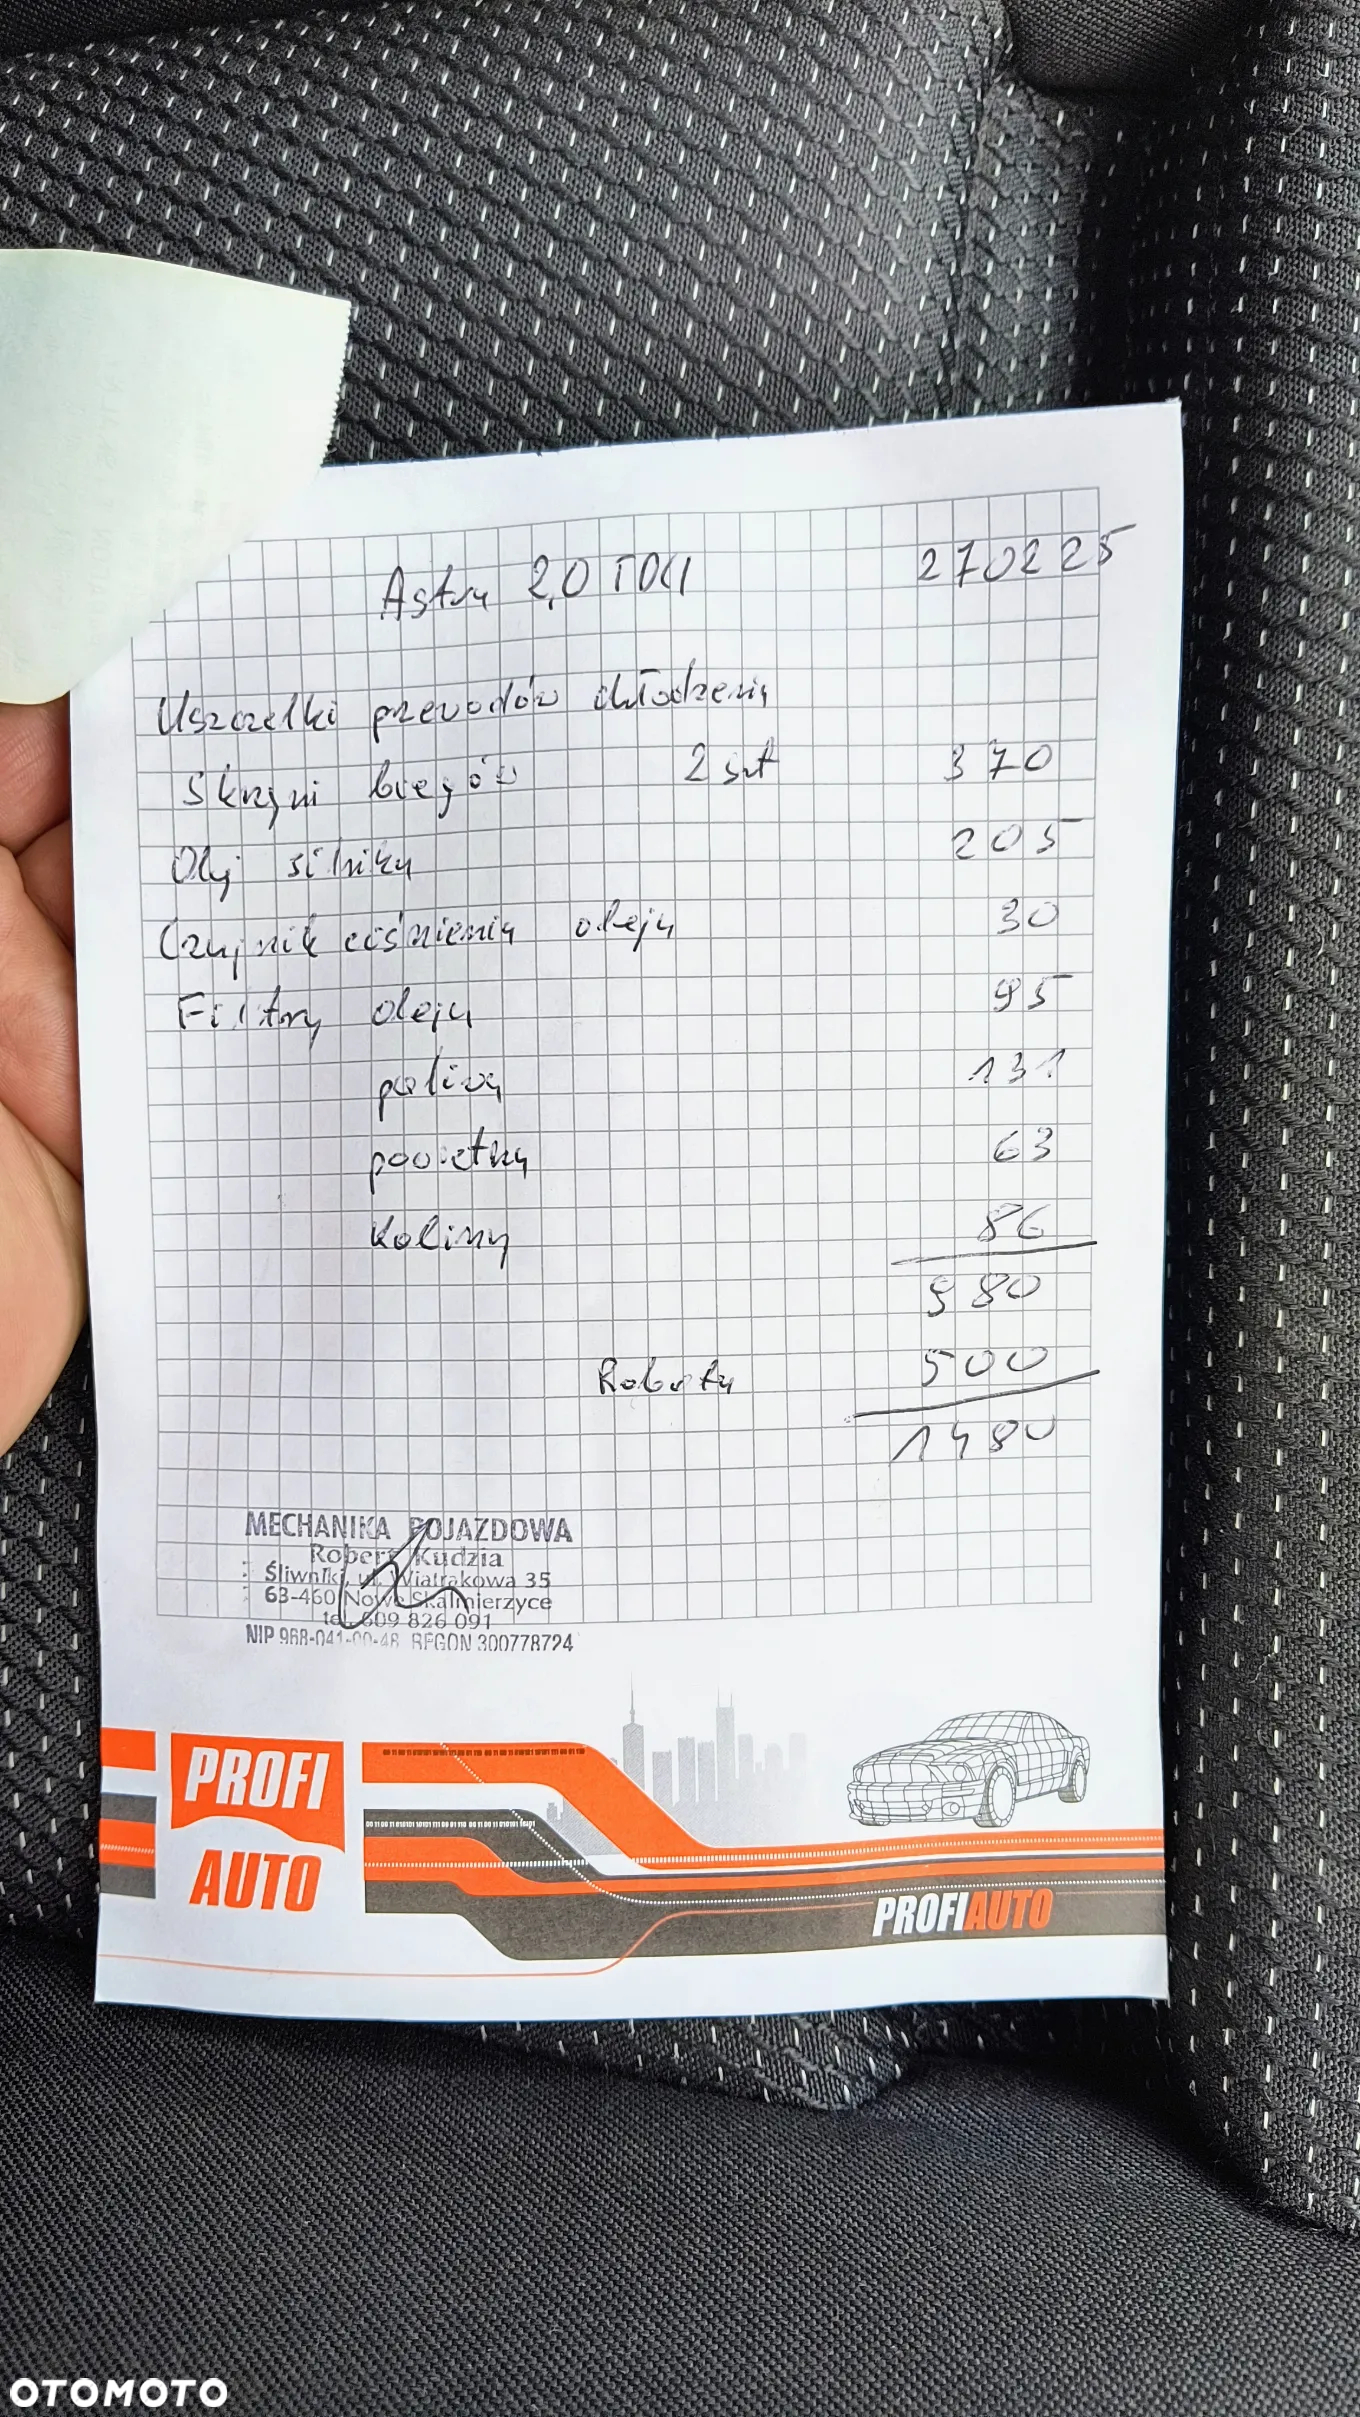 Astra 2,0 TDCI 270225
Uszczelki przewodów chłodzenia
Skrzyni biegów 2 szt 370
Olej silnika 205
Czujnik ciśnienia oleju 30
Filtry oleju 95
paliwa 131
powietrza 63
Kabiny 86
980
Robota 500
1480
MECHANIKA POJAZDOWA
Robert Kudzia
Śliwniki, ul. Wiatrakowa 35
63-460 Nowe Skalmierzyce
tel. 609 826 091
NIP 968-041-00-48 REGON 300778724
PROFI
AUTO
PROFIAUTO
OTOMOTO